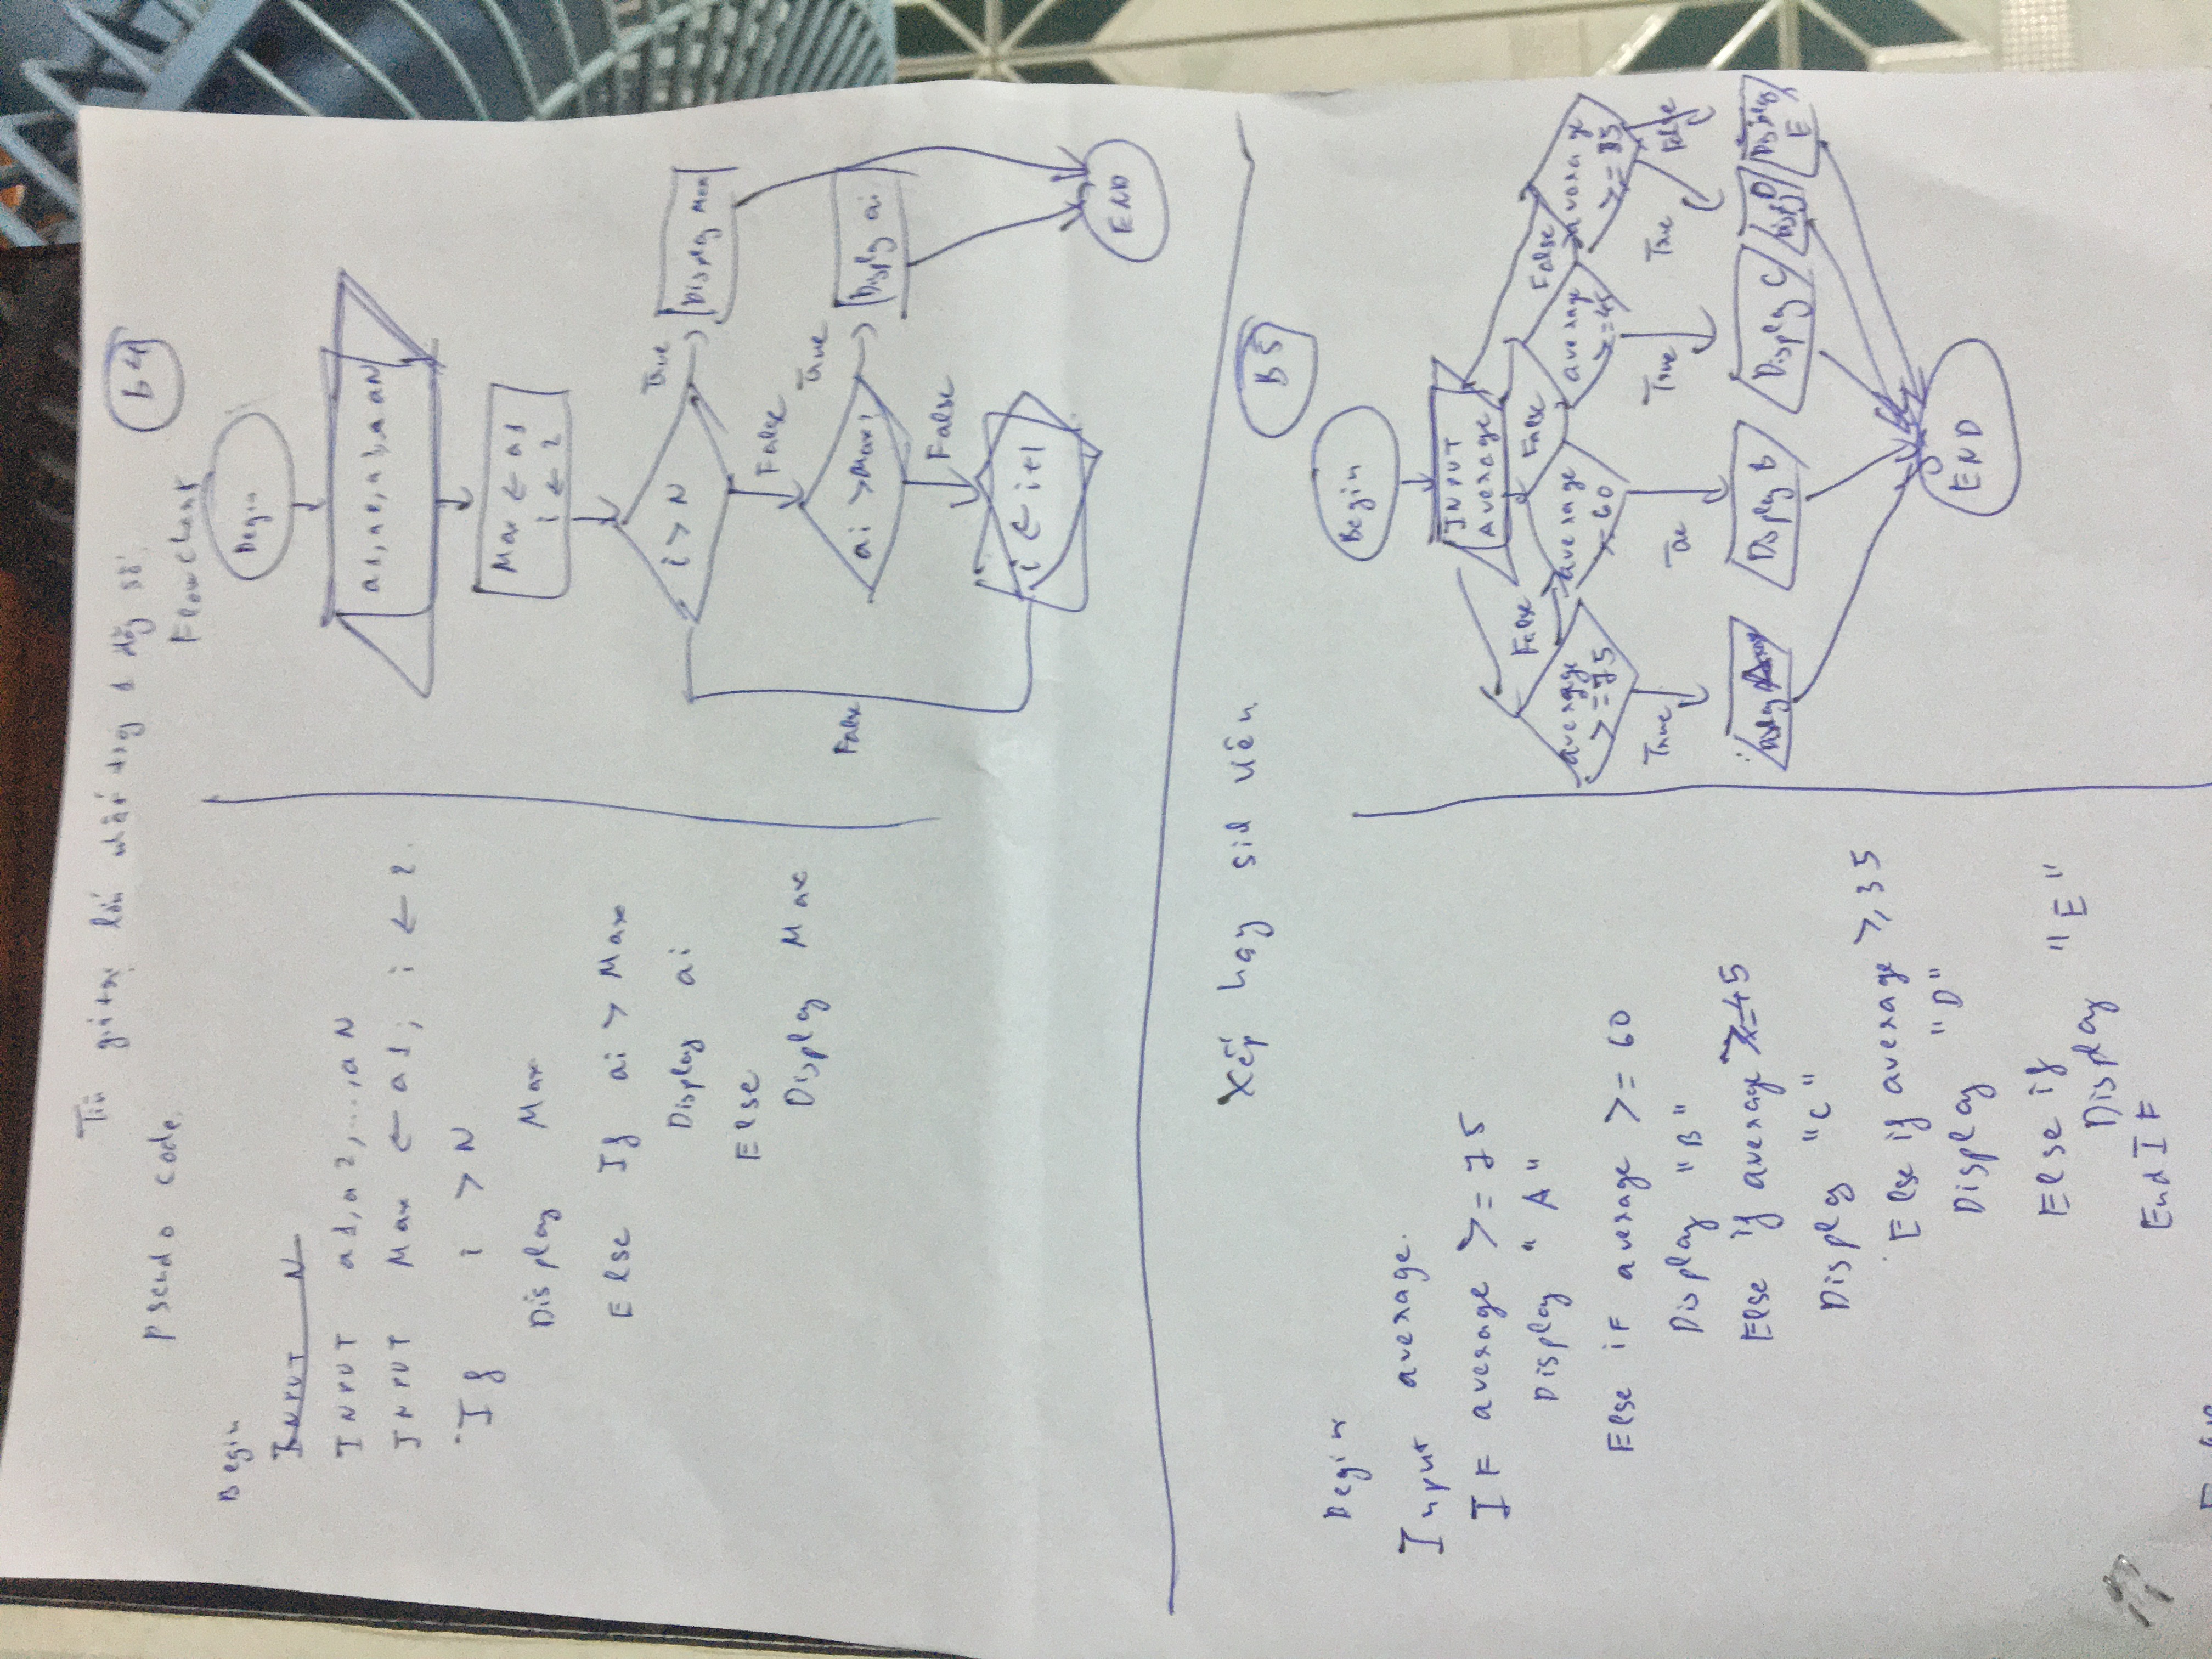 Tìm giá trị lớn nhất trog 1 dãy số
B4
Psendo code.
Begin
INPUT N
INPUT a1, a2, ..., aN
INPUT Max ← a1; i ← 2.
If i > N
Display Max
Else If ai > Max
Display ai
Else
Display Max
Flowchart
Begin
Max ← a1
i ← 2
i > N
True
Display Max
False
ai > Max?
True
Display ai
False
False
i ← i+1
END
Xếp hạg sih viên
B5
Begin
Input average.
IF average >= 75
Display "A"
Else iF average >= 60
Display "B"
Else if average >=45
Display "C"
Else if average ≥ 35
Display "D"
Else if
Display "E"
EndIF
Begin
INPUT
Average
False
False
False
average
>=75
average
>=60
average
>=45
average
>= 35
True
True
True
False
Display
Display B
Display C
Display D
Display
E
END